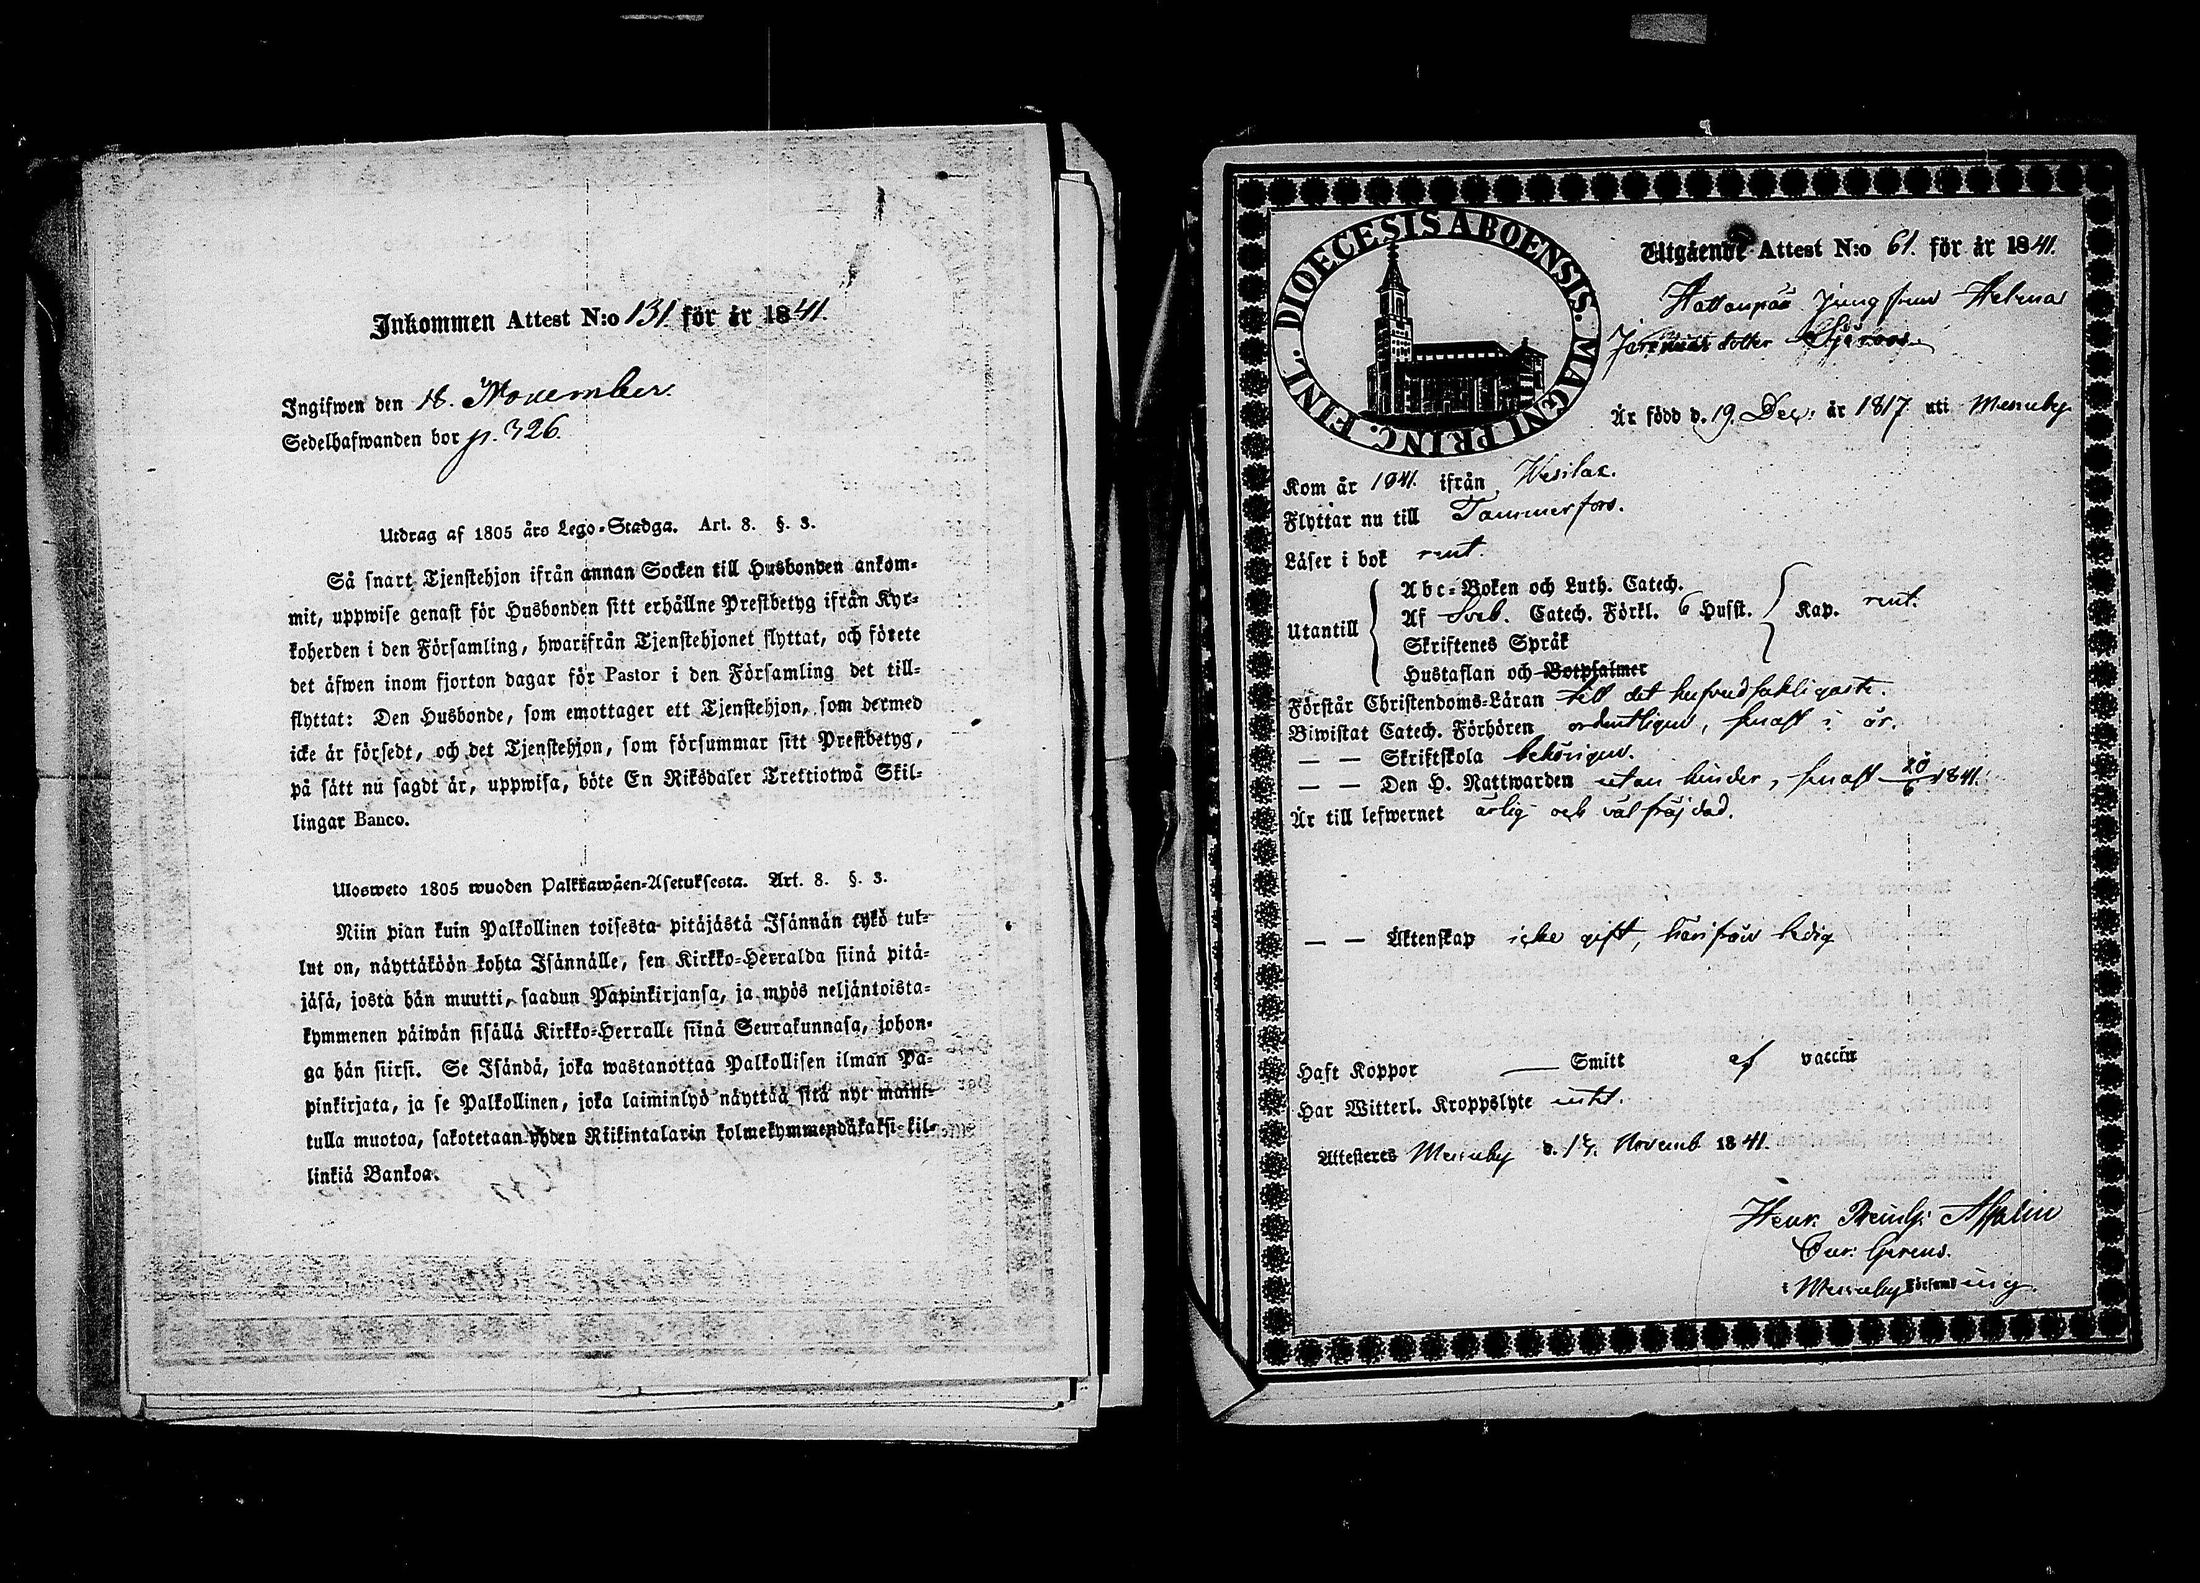 Inkommen Attest N:o 131 för år 1841.
Ingifwen den 18. November.
Sedelhafwanden bor p. 326.
Utdrag af 1805 års Lego-Stadga. Art. 8. §. 3.
Så snart Tjenstehjon ifrån annan Socken till Husbonden ankom-
mit, uppwise genast för Husbonden sitt erhållne Prestbetyg ifrån Kyr-
koherden i den Församling, hwarifrån Tjenstehjonet flyttat, och förete
det äfwen inom fjorton dagar för Pastor i den Församling det till-
flyttat: Den Husbonde, som emottager ett Tjenstehjon, som dermed
icke är försedt, och det Tjenstehjon, som försummar sitt Prestbetyg,
på sätt nu sagdt är, uppwisa, böte En Riksdaler Trettiotwå Skil-
lingar Banco.
Ulosweto 1805 wuoden Palkkawäen-Asetuksesta. Art. 8. §. 3.
Niin pian kuin Palkollinen toisesta pitäjästä Isännän tykö tul-
lut on, näyttäköön kohta Isännälle, sen Kirkko-Herralda siinä pitä-
jäsä, josta hän muutti, saadun Papinkirjansa, ja myös neljäntoista-
kymmenen päiwän sisällä Kirkko-Herralle siinä Seurakunnasa, johon-
ga hän siirsi. Se Isändä, joka wastanottaa Palkollisen ilman Pa-
pinkirjata, ja se Palkollinen, joka laiminlyö näyttää sitä nyt mainit-
tulla muotoa, sakotetaan yhden Riikintalarin kolmekymmendäkaksi kil-
linkiä Bankoa.
DIOECESIS ABOENSIS. MAGNI PRINC. FINL.
Utgående Attest N:o 61. för år 1841.
Jungfrun Helena
dotter
Är född d. 19. Dec. år 1817 uti Messuby
Kom år 1841. ifrån Wesilax.
Flyttar nu till Tammerfors.
Läser i bok rent.
Abc-Boken och Luth. Catech.
Utantill Af Sveb. Catech. Förkl. 6 Husst. Kap. rent.
Skriftenes Språk
Hustaflan och Botpsalmer
Förstår Christendoms-Läran till det hufvudsakligaste.
Biwistat Catech. Förhören ordentligen, senast i år.
— — Skriftskola behörigen.
— — Den H. Nattwarden utan hinder, senast 20/6 1841.
Är till lefwernet ärlig och välfräjdad.
— — Äktenskap icke gift, härifrån ledig
Haft Koppor — Smitt af vaccin
Har Witterl. Kroppslyte intet.
Attesteres Messuby d. Novemb 1841.
Henr. Reinh. Aspelin
Cur: Gerens.
i Messuby Församling.